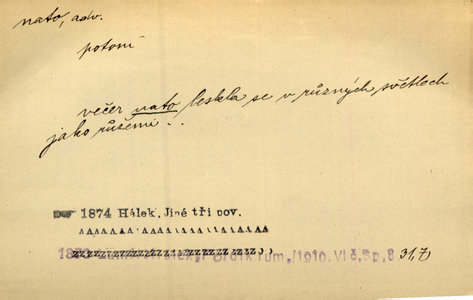 nato, adv.
potom
večer nato leskla se v různých světlech
jako růžemi..
1874 Hálek, Jiné tři pov.
31,7)